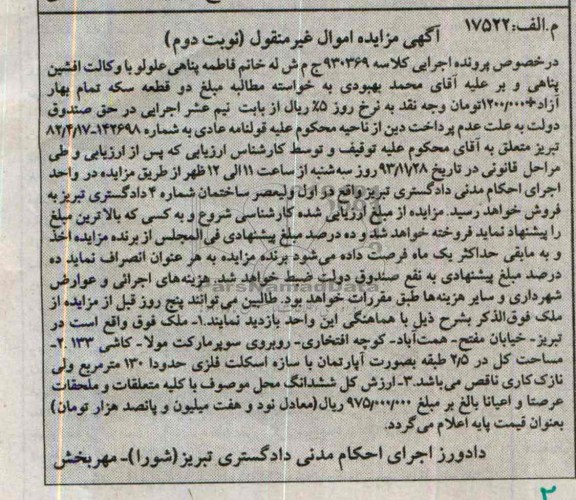 م.الف:۱۷۵۲۲
آگهی مزایده اموال غیرمنقول (نوبت دوم)
درخصوص پرونده اجرایی کلاسه ۹۳۰۳۶۹ج م ش له خانم فاطمه پناهی علولو با وکالت افشین
پناهی و بر علیه آقای محمد بهبودی به خواسته مطالبه مبلغ دو قطعه سکه تمام بهار
آزاد+۱۲۰۰/۰۰۰تومان وجه نقد به نرخ روز ۵٪ ریال از بابت نیم عشر اجرایی در حق صندوق
دولت به علت عدم پرداخت دین از ناحیه محکوم علیه قولنامه عادی به شماره ۱۴۲۶۹۸-۸۲/۳/۱۷
تبریز متعلق به آقای محکوم علیه توقیف و توسط کارشناس ارزیابی که پس از ارزیابی و طی
مراحل قانونی در تاریخ ۹۳/۱۱/۲۸ روز سه‌شنبه از ساعت ۱۱الی ۱۲ ظهر از طریق مزایده در واحد
اجرای احکام مدنی دادگستری تبریزواقع در اول ولیعصر ساختمان شماره ۴ دادگستری تبریز به
فروش خواهد رسید. مزایده از مبلغ ارزیابی شده کارشناسی شروع و به کسی که بالا ترین مبلغ
را پیشنهاد نماید فروخته خواهد شد و ده درصد مبلغ پیشنهادی فی‌المجلس از برنده مزایده اخذ
و به مابقی حداکثر یک ماه فرصت داده می‌شود برنده مزایده به هر عنوان انصراف نماید ده
درصد مبلغ پیشنهادی به نفع صندوق دولت ضبط خواهد شد. هزینه‌های اجرائی و عوارض
شهرداری و سایر هزینه‌ها طبق مقررات خواهد بود. طالبین می‌توانند پنج روز قبل از مزایده از
ملک فوق‌الذکر بشرح ذیل با هماهنگی این واحد بازدید نمایند.۱- ملک فوق واقع است در
تبریز- خیابان مفتح- همت‌آباد- کوچه افتخاری- روبروی سوپرمارکت مولا- کاشی ۱۳۳ .۲-
مساحت کل در ۲/۵ طبقه بصورت آپارتمان با سازه اسکلت فلزی حدودا ۱۳۰ مترمربع ولی
نازک کاری ناقص می‌باشد.۳- ارزش کل ششدانگ محل موصوف با کلیه متعلقات و ملحقات
عرصتا و اعیانا بالغ بر مبلغ ۹۷۵/۰۰۰/۰۰۰ ریال(معادل نود و هفت میلیون و پانصد هزار تومان)
بعنوان قیمت پایه اعلام می‌گردد.
دادورز اجرای احکام مدنی دادگستری تبریز(شورا)- مهربخش
ParsNamadData
۲